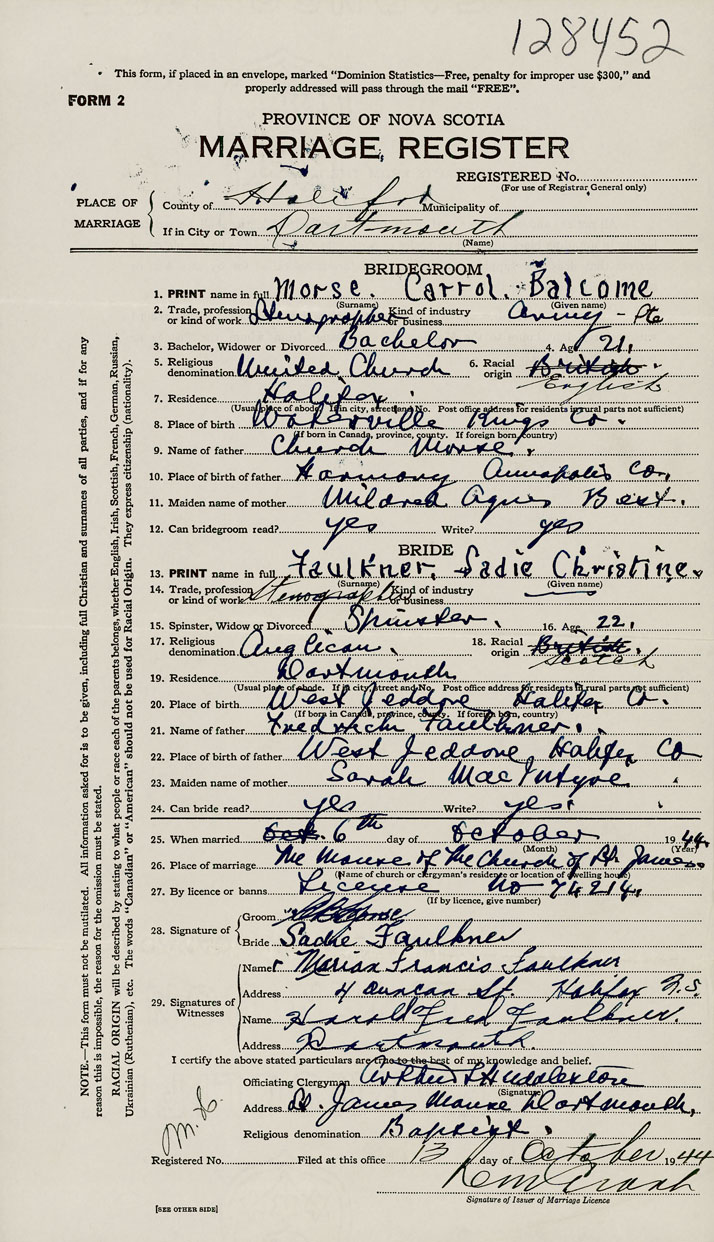 128452
• This form, if placed in an envelope, marked “Dominion Statistics—Free, penalty for improper use $300,” and
properly addressed will pass through the mail “FREE”.
FORM 2
PROVINCE OF NOVA SCOTIA
MARRIAGE REGISTER
REGISTERED No.
(For use of Registrar General only)
PLACE OF MARRIAGE
County of Halifax Municipality of
If in City or Town Dartmouth
(Name)
BRIDEGROOM
1. PRINT name in full Morse. Carrol. Balcome
(Surname) (Given name)
2. Trade, profession or kind of work Stenographer Kind of industry or business Army - Pte
3. Bachelor, Widower or Divorced Bachelor 4. Age 21.
5. Religious denomination United Church 6. Racial origin British English
7. Residence Halifax
(Usual place of abode. If in city, street and No. Post office address for residents in rural parts not sufficient)
8. Place of birth Waterville Kings Co.
(If born in Canada, province, county. If foreign born, country)
9. Name of father Church Morse.
10. Place of birth of father Harmony Annapolis Co.
11. Maiden name of mother Mildred Agnes Best.
12. Can bridegroom read? yes Write? yes
BRIDE
13. PRINT name in full Faulkner, Sadie Christine.
(Surname) (Given name)
14. Trade, profession or kind of work Stenographer Kind of industry or business
15. Spinster, Widow or Divorced Spinster. 16. Age 22.
17. Religious denomination Anglican. 18. Racial origin British. Scotch
19. Residence Dartmouth
(Usual place of abode. If in city, street and No. Post office address for residents in rural parts not sufficient)
20. Place of birth West Jeddore Halifax Co.
(If born in Canada, province, county. If foreign born, country)
21. Name of father Fredrich Faulkner.
22. Place of birth of father West Jeddore, Halifax Co
23. Maiden name of mother Sarah MacIntyre
24. Can bride read? yes Write? yes
25. When married Oct. 6th day of October 1944.
(Month) (Year)
26. Place of marriage The Manse of The Church of St. James.
(Name of church or clergyman's residence or location of dwelling house)
27. By licence or banns License No 74214.
(If by licence, give number)
28. Signature of
Groom
Bride Sadie Faulkner
29. Signatures of Witnesses
Name Marian Francis Faulkner
Address 4 Duncan St. Halifax N.S.
Name Harold Fred Faulkner.
Address Dartmouth.
I certify the above stated particulars are true to the best of my knowledge and belief.
Officiating Clergyman Arthur Huddleston
(Signature)
Address St. James Manse Dartmouth,
Religious denomination Baptist.
Registered No. Filed at this office 13 day of October 1944
Signature of Issuer of Marriage Licence
[SEE OTHER SIDE]
NOTE.—This form must not be mutilated. All information asked for is to be given, including full Christian and surnames of all parties, and if for any
reason this is impossible, the reason for the omission must be stated.
RACIAL ORIGIN will be described by stating to what people or race each of the parents belongs, whether English, Irish, Scottish, French, German, Russian,
Ukrainian (Ruthenian), etc. The words “Canadian” or “American” should not be used for Racial Origin. They express citizenship (nationality).